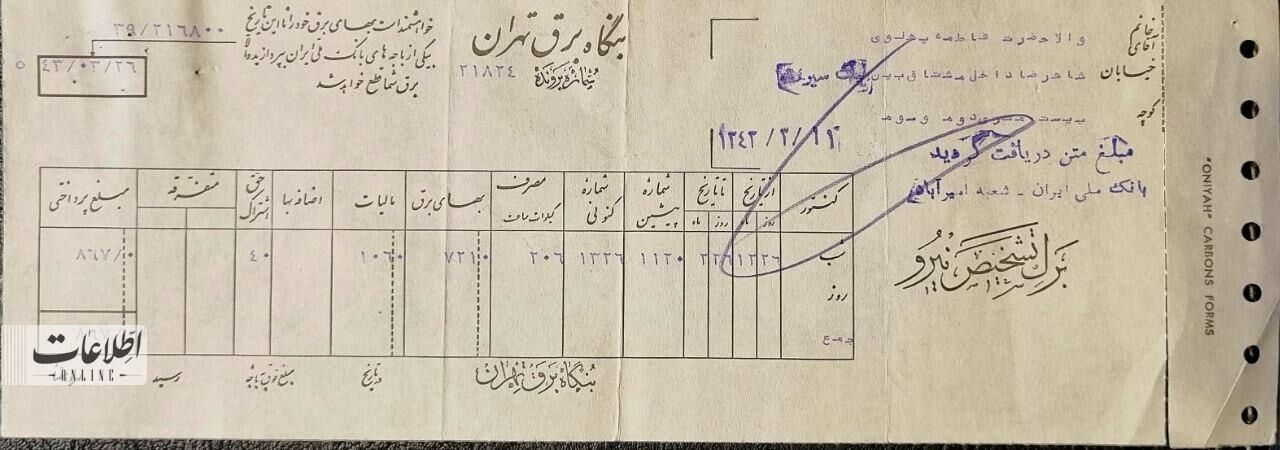 خانم
آقای
والاحضرت فاطمه پهلوی
خیابان
شاهرضا داخل مشتاق بین
کوچه
بیست متری دوم و سوم
مبلغ متن دریافت گردید
بانک ملی ایران - شعبه امیرآباد
برگ تشخیص نیرو
بنگاه برق تهران
شماره پرونده
۲۱۸۲۴
۱۳۴۳/۳/۱۱
خواهشمند است بهای برق خود را تا این تاریخ
بیکی از باجه های بانک ملی ایران بپردازید والا
برق شما قطع خواهد شد
۳۹/۲۱۶۸۰۰
۴۳/۰۳/۲۶
کنتور از تاریخ تا تاریخ شماره پیشین شماره کنونی مصرف کیلووات ساعت بهای برق مالیات اضافه بها حق اشتراک متفرقه مبلغ پرداختی
روز ماه روز ماه
شب ۱۱۲۰ ۱۳۲۶ ۲۰۶ ۷۲۱۰ ۱۰۶۰ ۴۰ ۸۶۷/۰
روز
جمع
بنگاه برق تهران
در تاریخ
مبلغ فوق بباجه
رسید
اطلاعات
ONLINE
"ONIYAH" CARBONS FORMS